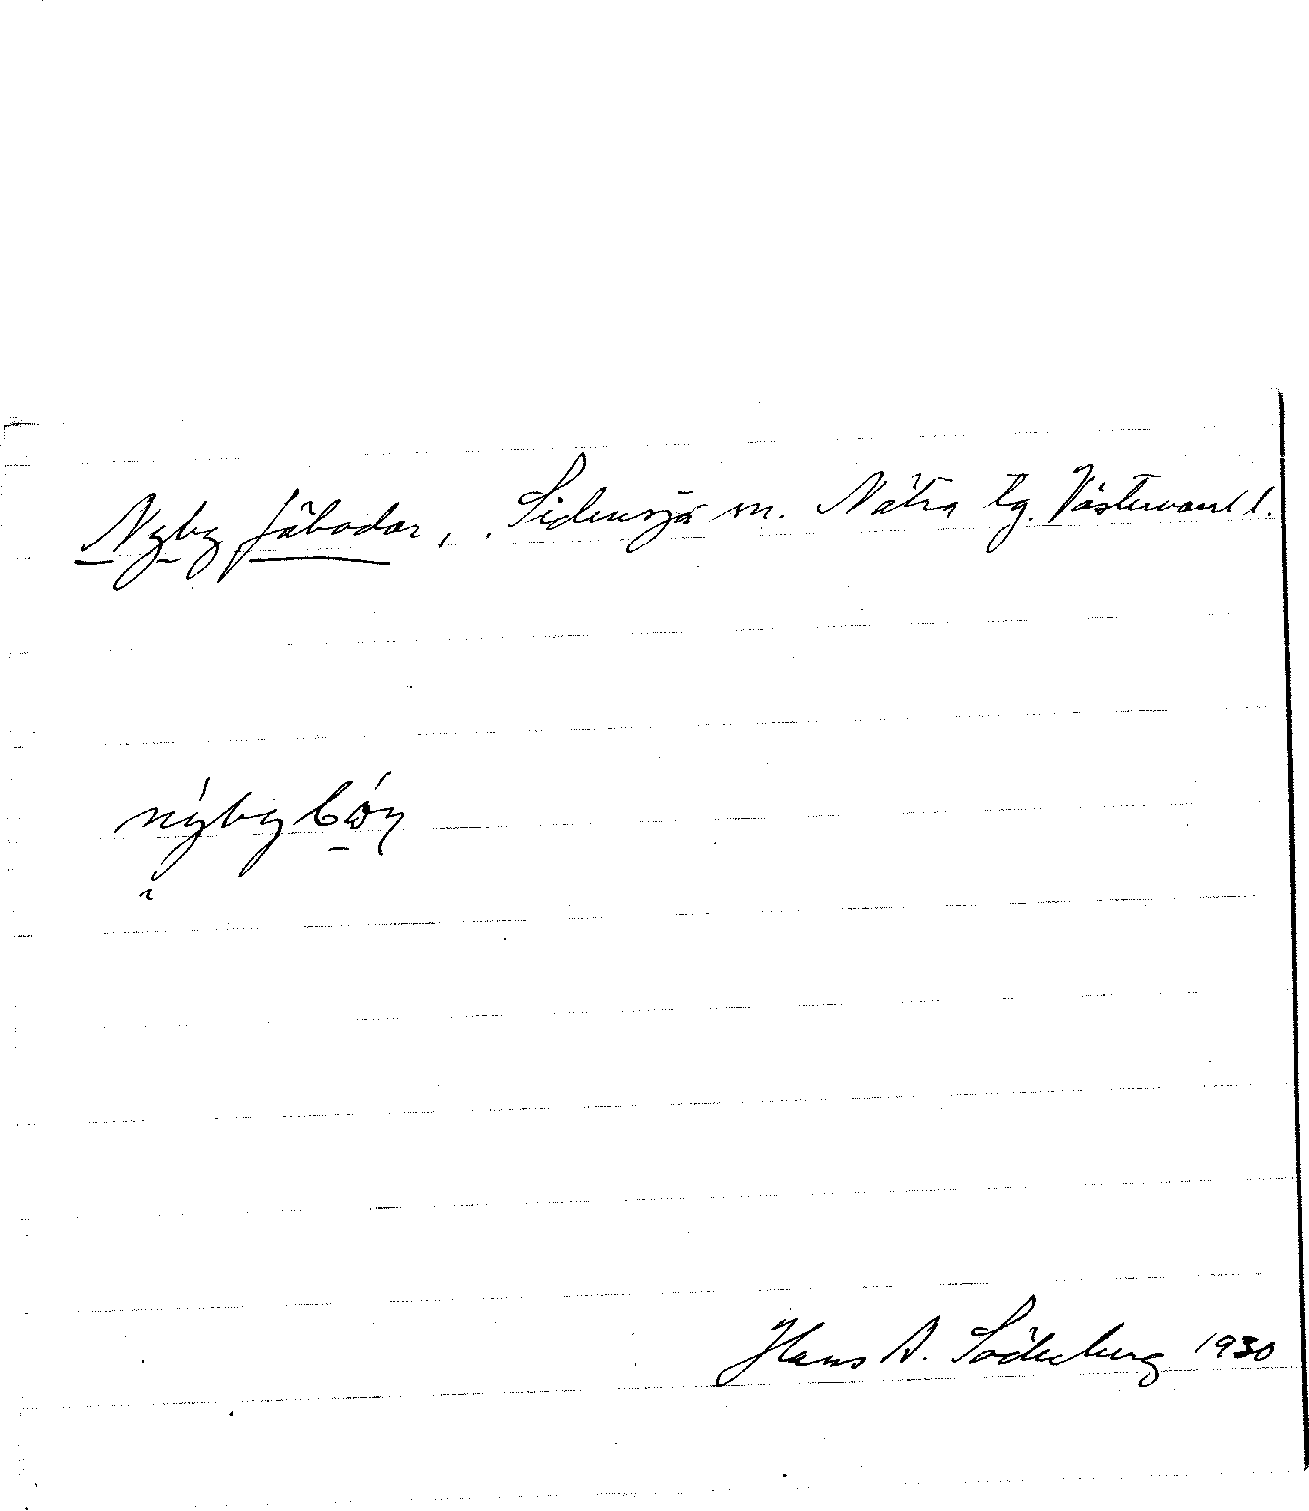 Nyby fäbodar, . Sidensjö sn. Nätra tg. Västernorrl l.
Hans A. Söderberg 1930